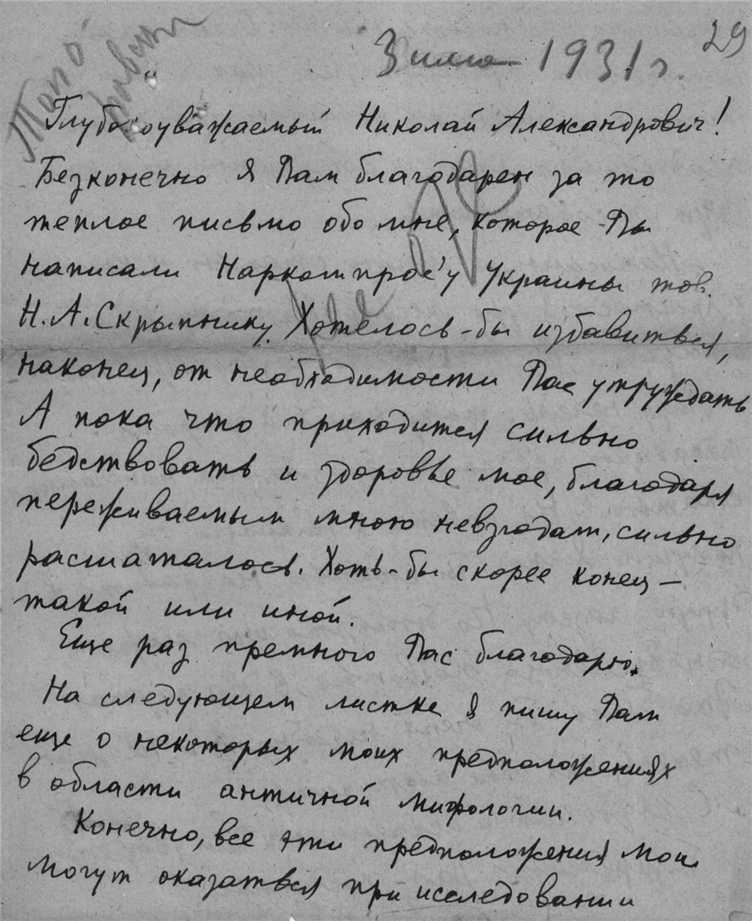 29
Зима 1931 г.
Глубокоуважаемый Николай Александрович!
Безконечно я Вам благодарен за то
теплое письмо обо мне, которое Вы
написали Наркомпрос'у Украины тов.
Н.А.Скрыпнику. Хотелось-бы избавиться,
наконец, от необходимости Вас утруждать
А пока что приходится сильно
бедствовать и здоровье мое, благодаря
переживаемым мною невзгодам, сильно
расшаталось. Хоть-бы скорее конец –
такой или иной.
Еще раз премного Вас благодарю.
На следующем листке я пишу Вам
еще о некоторых моих предположениях
в области античной мифологии.
Конечно, все эти предположения мои
могут оказаться при исследовании